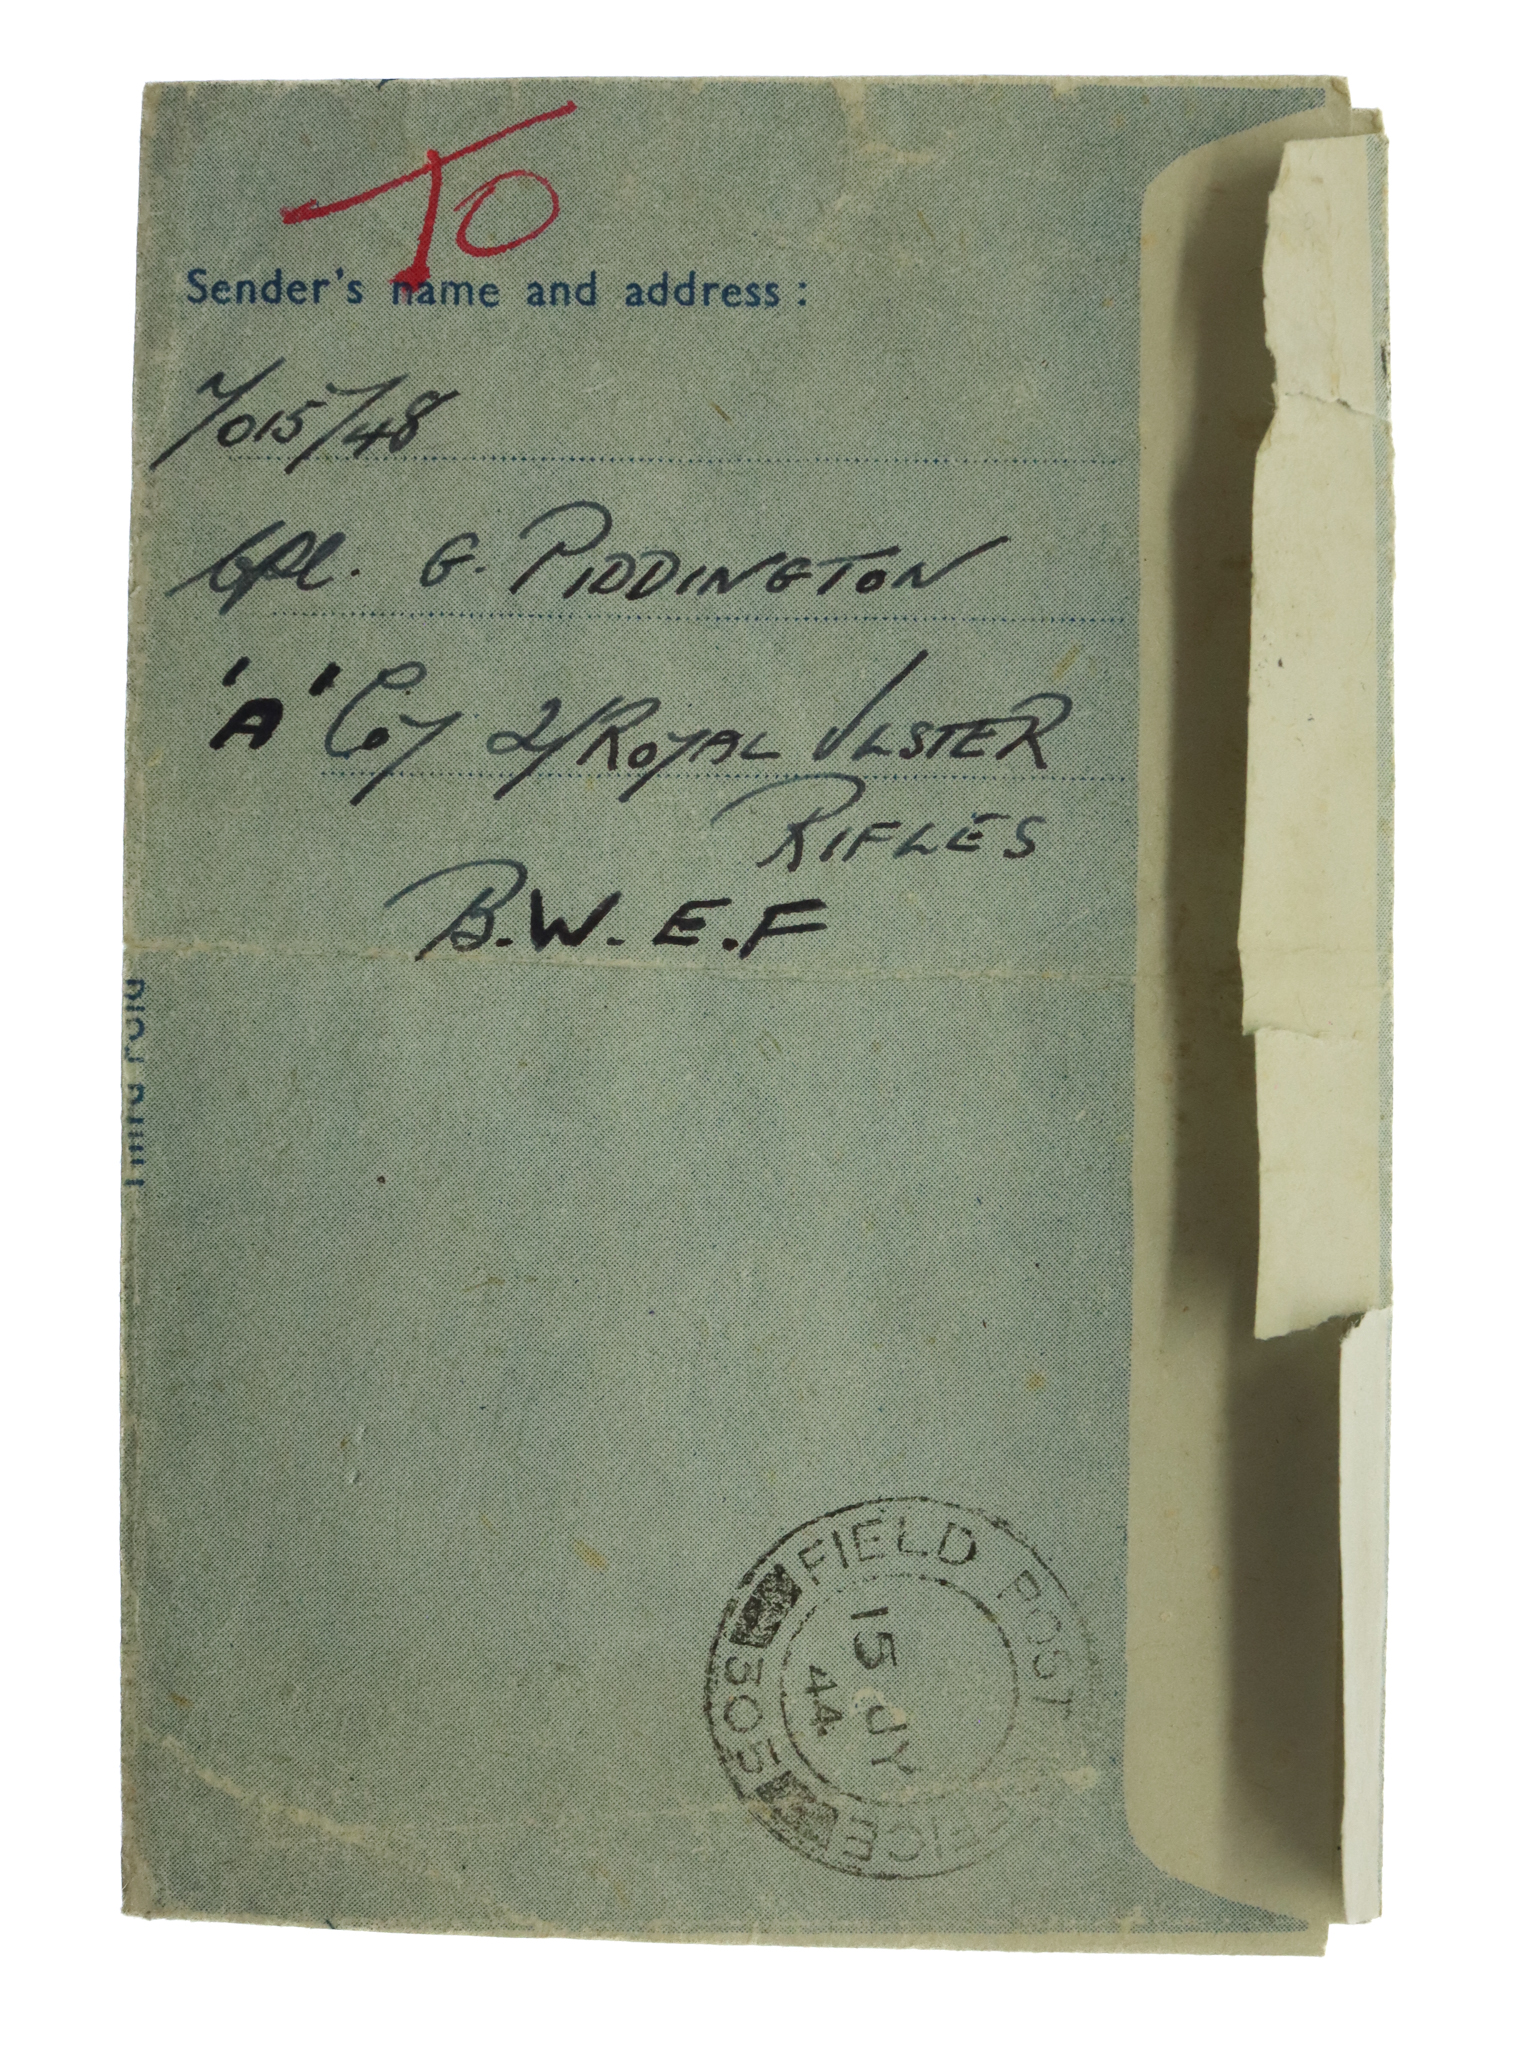 TO
Sender's name and address :
7015748
Cpl. G. PIDDINGTON
'A' Coy 2/ROYAL ULSTER
RIFLES
B.W.E.F
Third Fold
FIELD POST OFFICE
305
15 JY
44